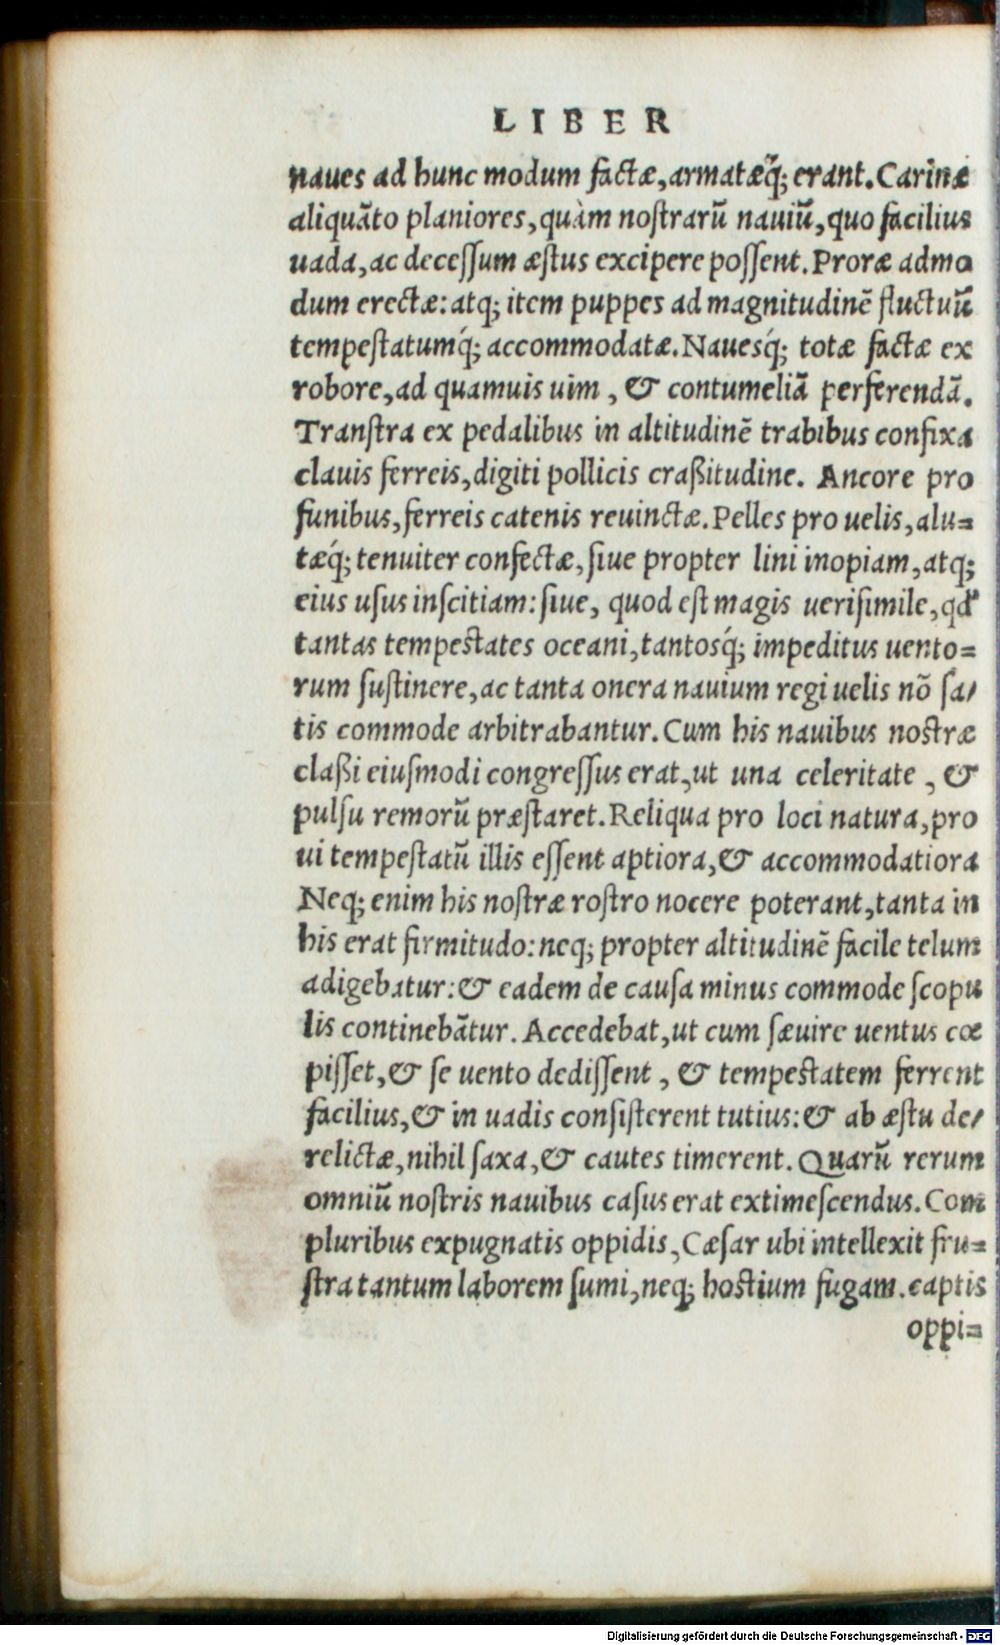 LIBER
naues ad hunc modum factæ, armatæq́; erant. Carinæ
aliquãto planiores, quàm noſtrarũ nauiũ, quo facilius
uada, ac deceſſum æſtus excipere poſſent. Proræ admo
dum erectæ: atq; item puppes ad magnitudinẽ fluctuũ
tempeſtatumq́; accommodatæ. Nauesq́; totæ factæ ex
robore, ad quamuis uim, & contumeliã perferendã.
Tranſtra ex pedalibus in altitudinẽ trabibus confixa
clauis ferreis, digiti pollicis craßitudine. Ancore pro
funibus, ferreis catenis reuinctæ. Pelles pro uelis, alu=
tæq́; tenuiter confectæ, ſiue propter lini inopiam, atq;
eius uſus inſcitiam: ſiue, quod eſt magis ueriſimile, qđ
tantas tempeſtates oceani, tantosq́; impeditus uento=
rum ſuſtinere, ac tanta onera nauium regi uelis nõ ſa/
tis commode arbitrabantur. Cum his nauibus noſtræ
claßi eiuſmodi congreſſus erat, ut una celeritate, &
pulſu remorũ præſtaret. Reliqua pro loci natura, pro
ui tempeſtatũ illis eſſent aptiora, & accommodatiora
Neq; enim his noſtræ roſtro nocere poterant, tanta in
his erat firmitudo: neq; propter altitudinẽ facile telum
adigebatur: & eadem de cauſa minus commode ſcopu
lis continebãtur. Accedebat, ut cum ſæuire uentus cœ
piſſet, & ſe uento dediſſent, & tempeſtatem ferrent
facilius, & in uadis conſiſterent tutius: & ab æſtu de/
relictæ, nihil ſaxa, & cautes timerent. Quarũ rerum
omniũ noſtris nauibus caſus erat extimeſcendus. Com
pluribus expugnatis oppidis, Cæſar ubi intellexit fru=
ſtra tantum laborem ſumi, neq; hoſtium fugam. captis
oppi=
Digitalisierung gefördert durch die Deutsche Forschungsgemeinschaft - DFG